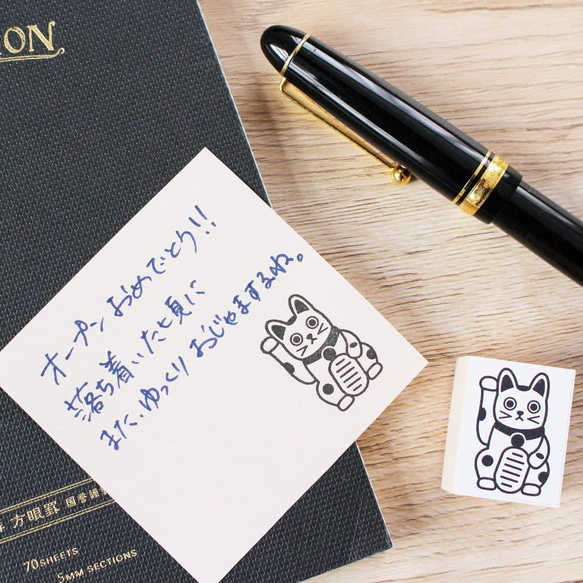 ION
オープンおめでとう!!
落ち着いた頃に
また、ゆっくりおじゃまするね。
方眼罫
70SHEETS
5MM SECTIONS